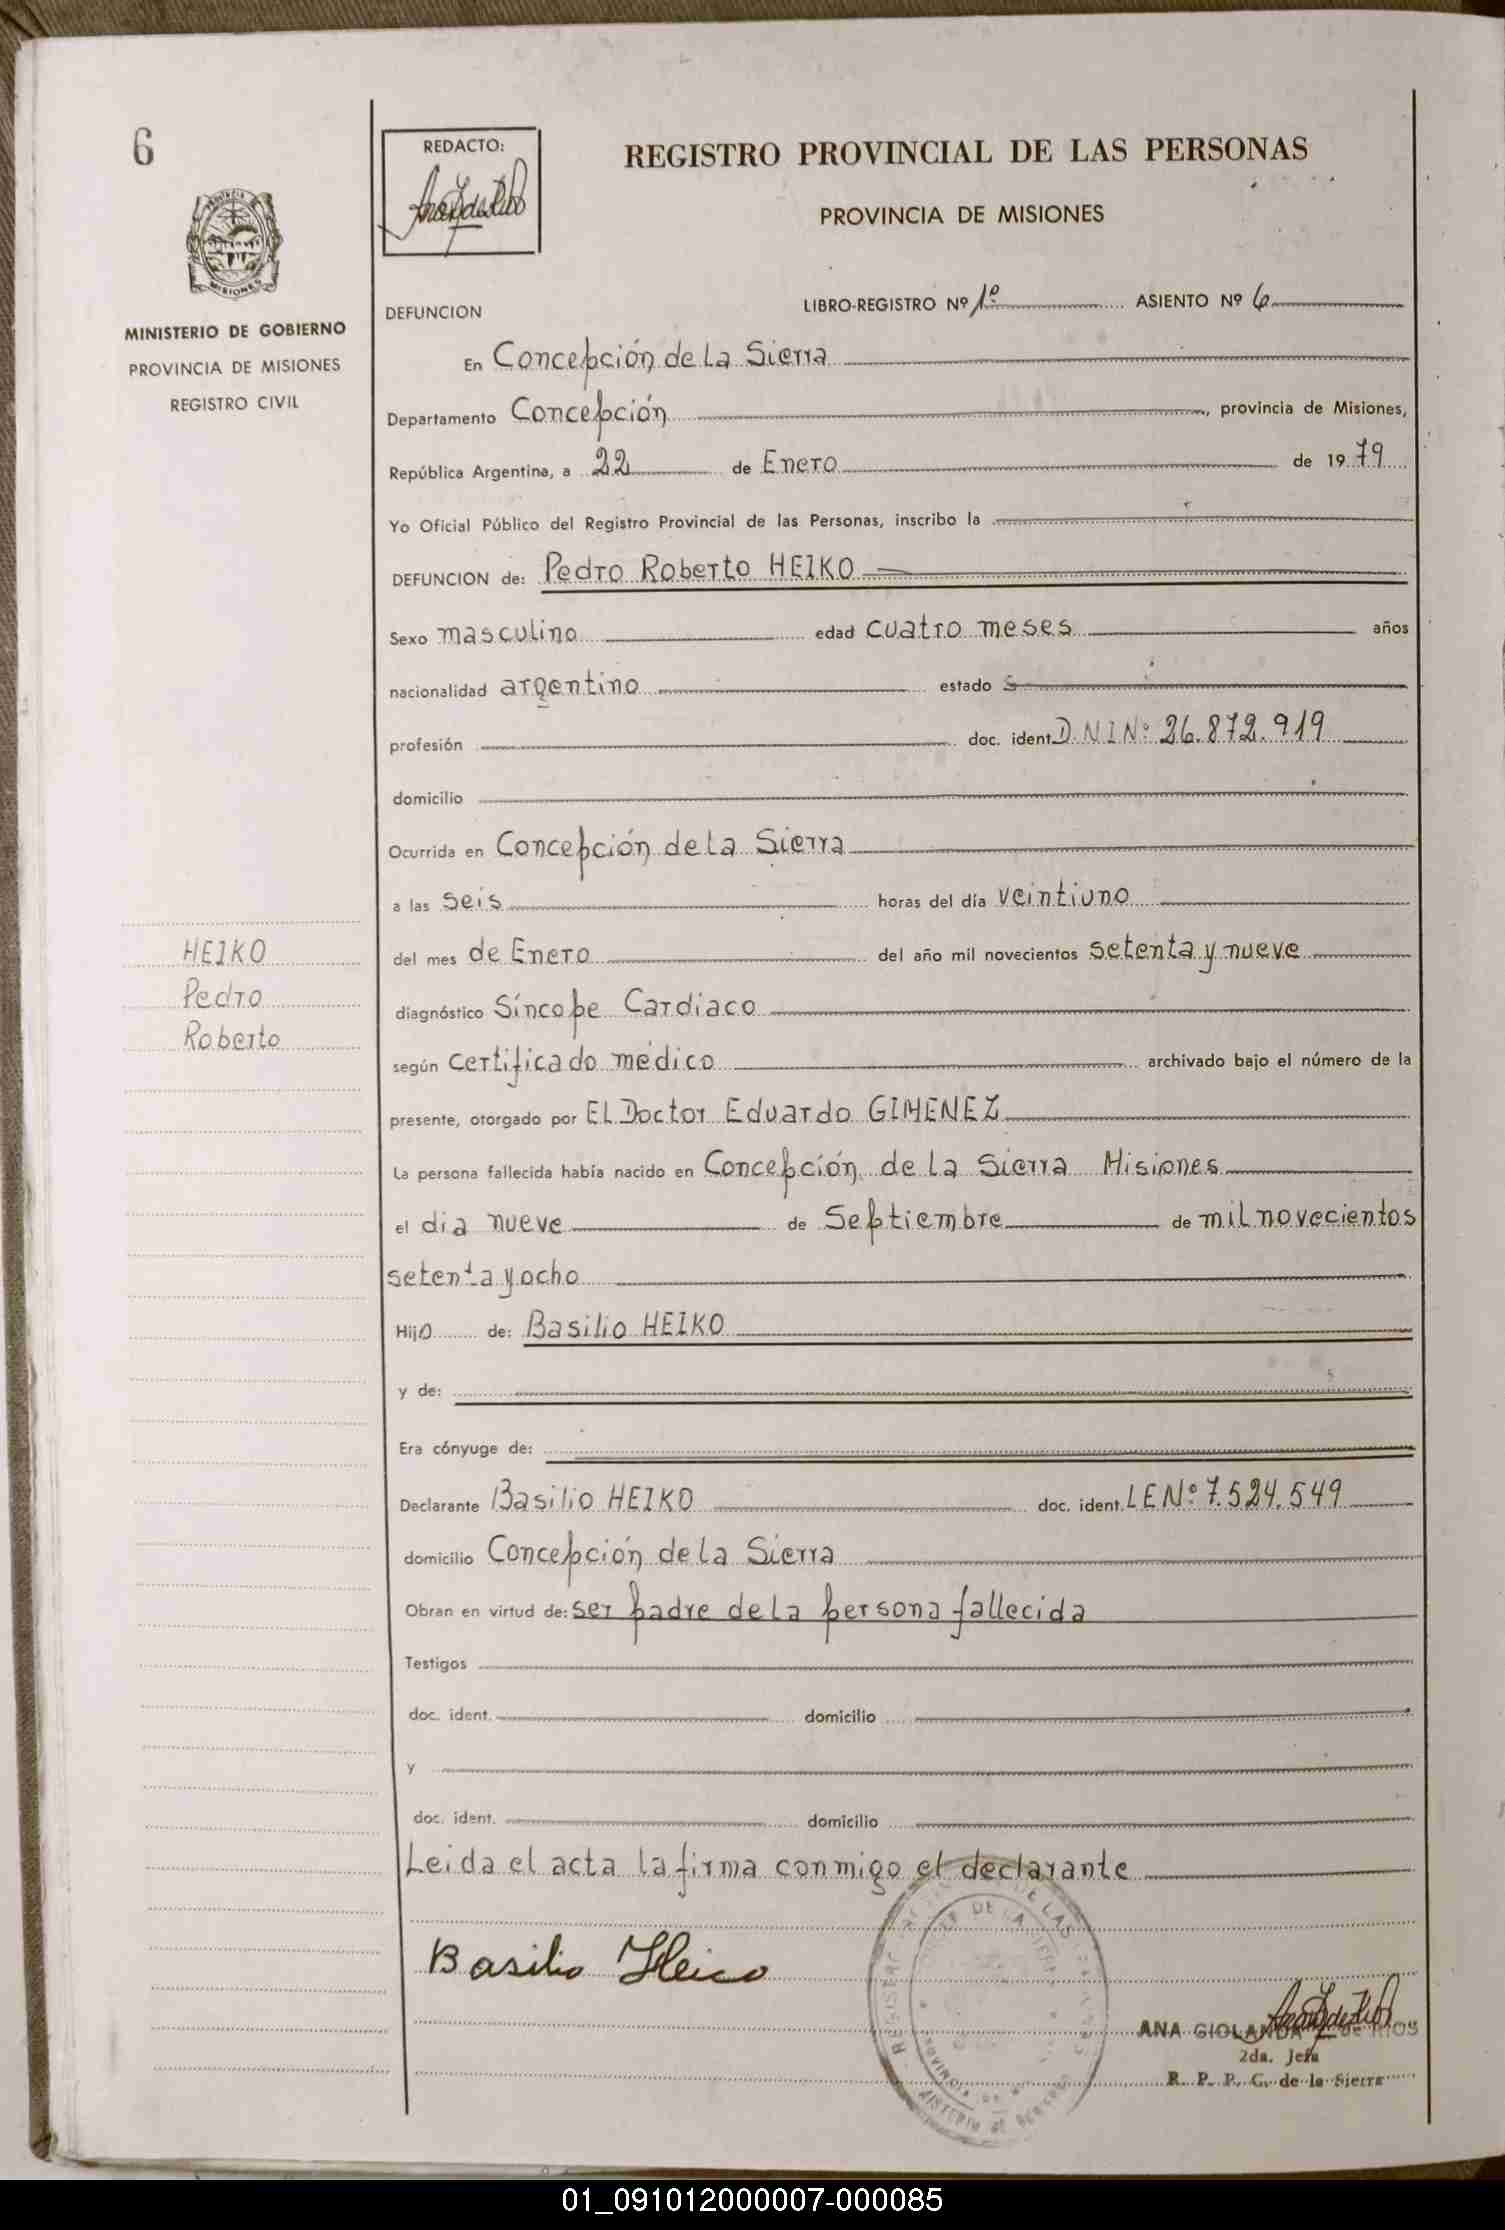 6
REDACTO:
REGISTRO PROVINCIAL DE LAS PERSONAS
PROVINCIA DE MISIONES
PROVINCIA
MISIONES
MINISTERIO DE GOBIERNO
PROVINCIA DE MISIONES
REGISTRO CIVIL
DEFUNCION LIBRO-REGISTRO Nº 1º ASIENTO Nº 6
En Concepción de La Sierra
Departamento Concepción, provincia de Misiones,
República Argentina, a 22 de Enero de 1979
Yo Oficial Público del Registro Provincial de las Personas, inscribo la
DEFUNCION de: Pedro Roberto HEIKO
Sexo masculino edad cuatro meses años
nacionalidad argentino estado S
profesión doc. ident. D.N.I Nº 26.872.919
domicilio
Ocurrida en Concepción de La Sierra
a las seis horas del día veintiuno
del mes de Enero del año mil novecientos setenta y nueve
diagnóstico Síncope Cardíaco
según certificado médico archivado bajo el número de la
presente, otorgado por EL Doctor Eduardo GIMENEZ
La persona fallecida había nacido en Concepción de La Sierra Misiones
el día nueve de Septiembre de mil novecientos
setenta y ocho
Hijo de: Basilio HEIKO
y de:
Era cónyuge de:
Declarante Basilio HEIKO doc. ident. LE Nº 7.524.549
domicilio Concepción de La Sierra
Obran en virtud de: ser padre de La persona fallecida
Testigos
doc. ident. domicilio
y
doc. ident. domicilio
Leida el acta la firma conmigo el declarante
HEIKO
Pedro
Roberto
Basilio Heico
DE LA SIERRA
ANA GIOLANDA de RIOS
2da. Jefa
R. P. P. C. de la Sierra
01_091012000007-000085